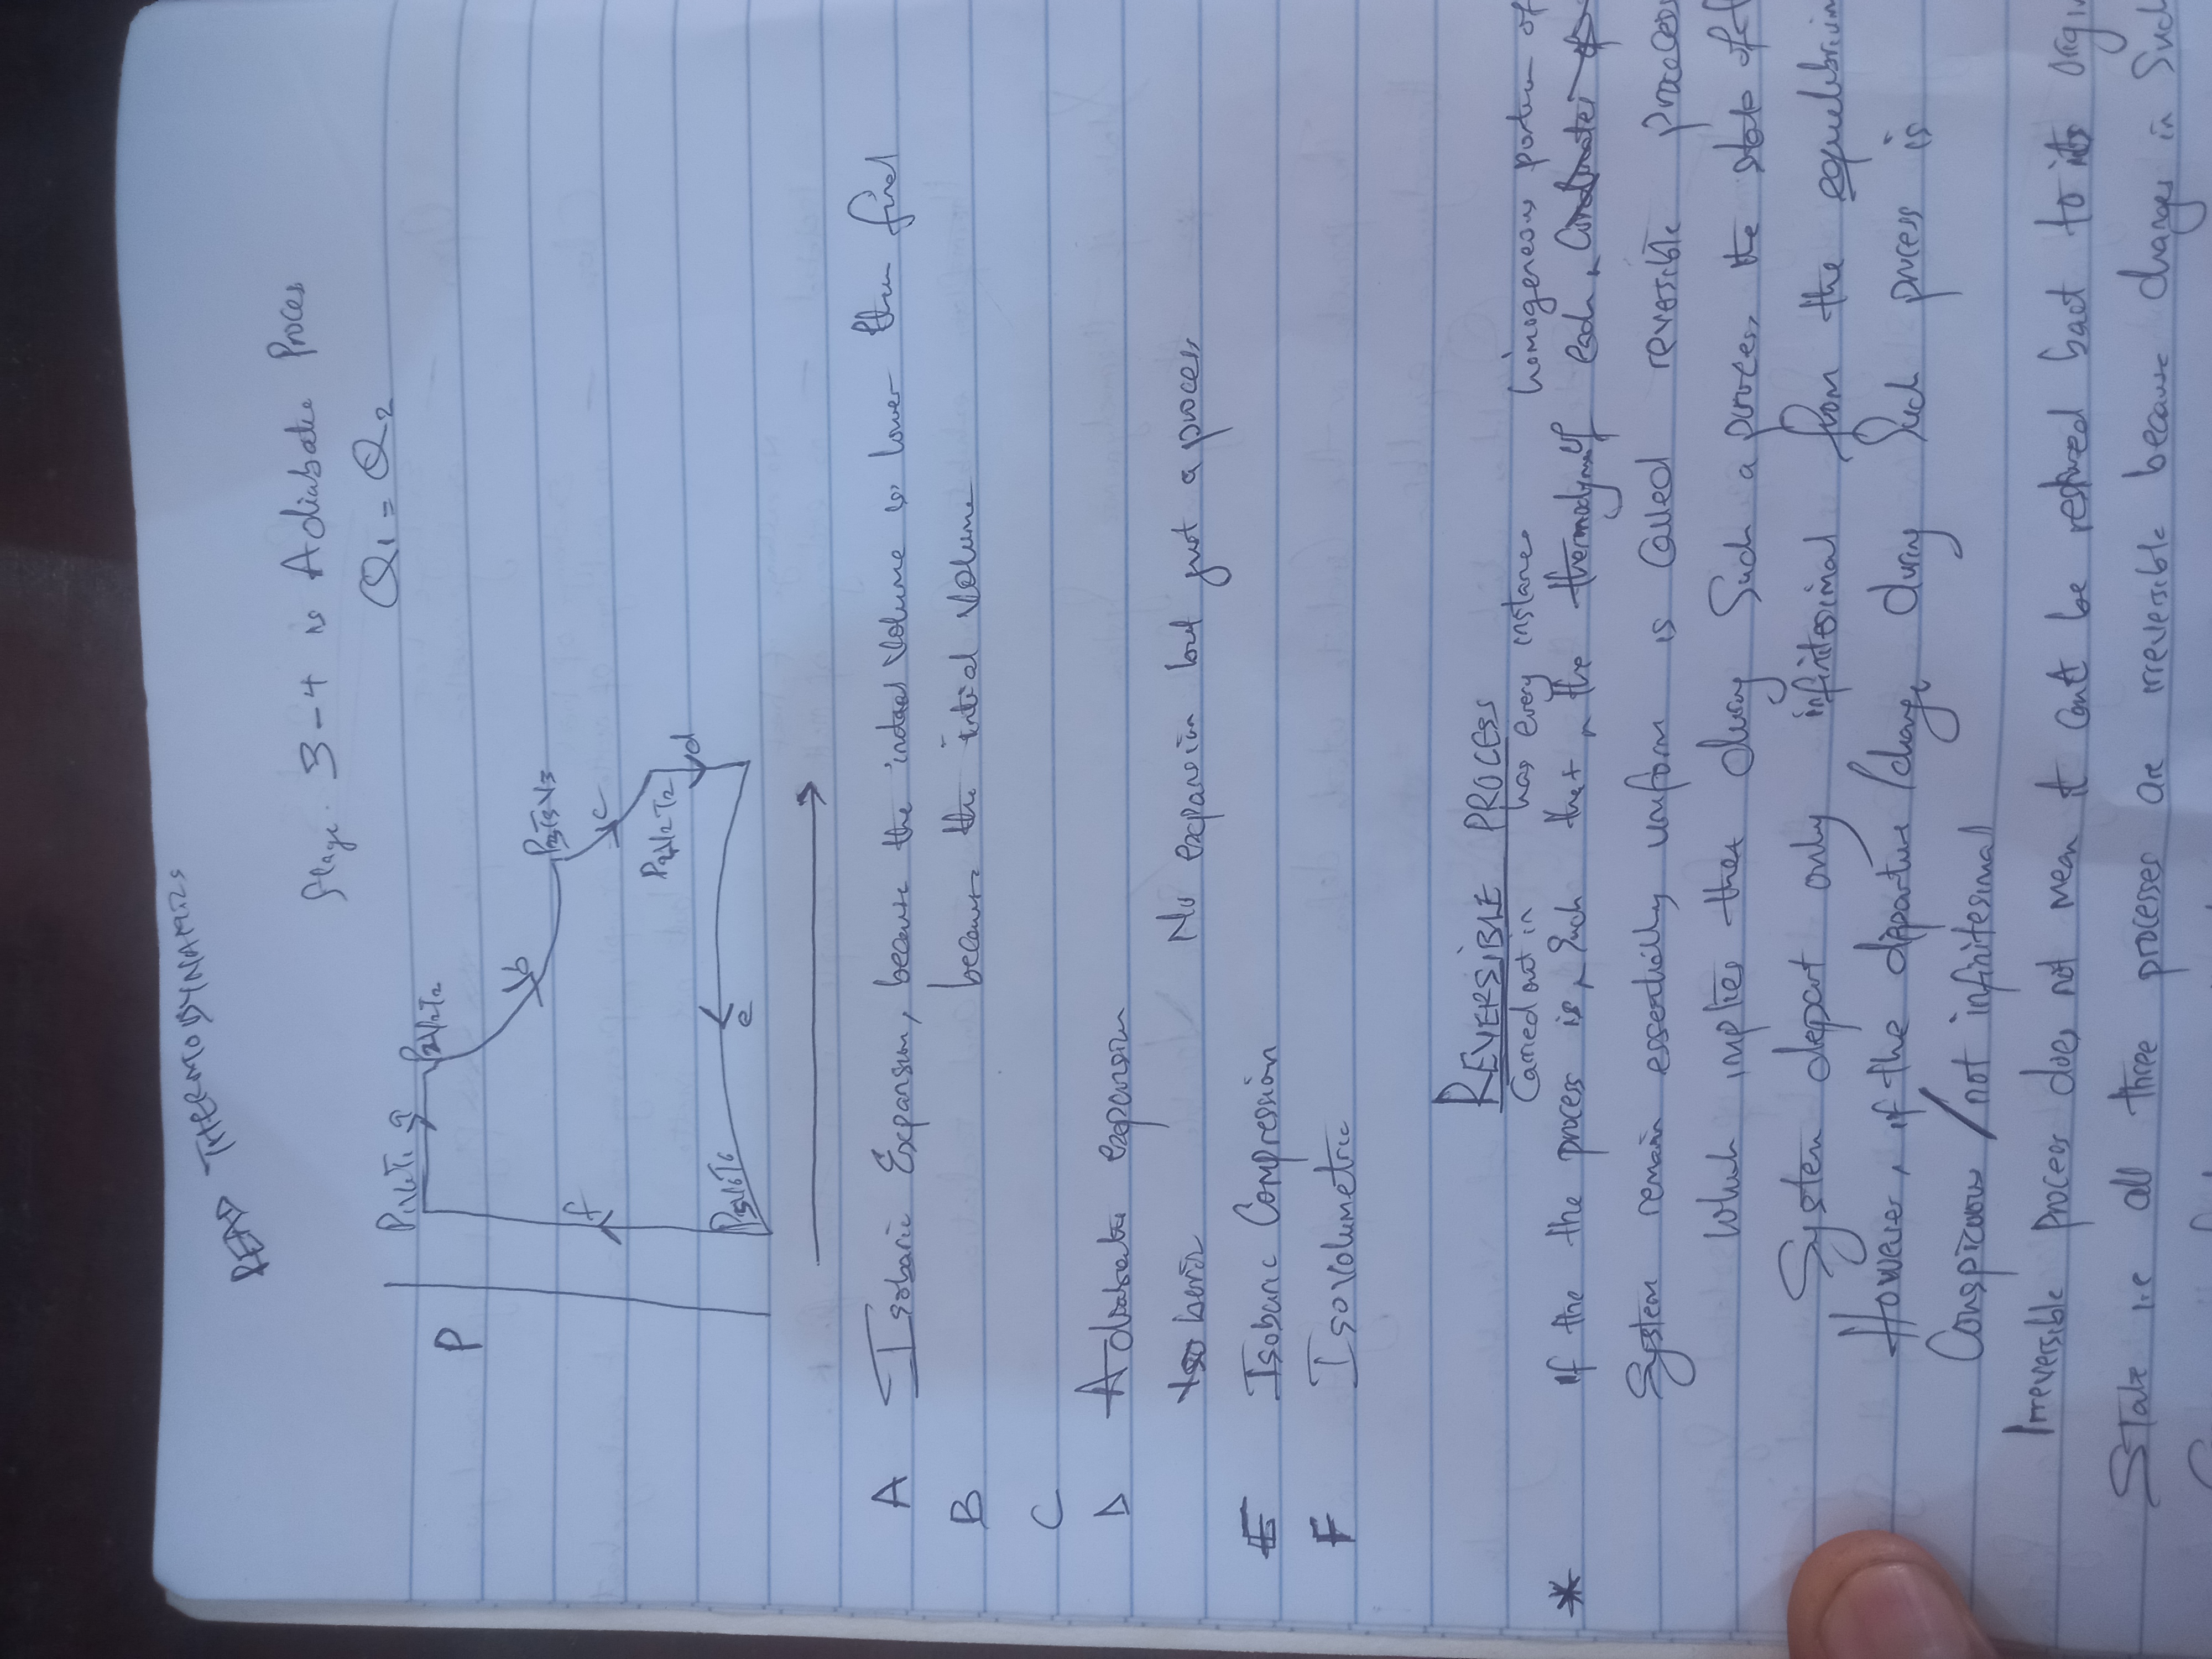 THERMODYNAMICS
Stage 3-4 is Adiabatic Proces
Q1 = Q2
P
P1V1T1 a P2V2T2
b
P3T3V3
c
P2V2T2
d
e
f
A Isobaric Expansion, because the initial Volume is lower than final
B because the initial Volume
C
D Adiabatic expansion
No expansion but just a process
E Isobaric Compression
F Isovolumetric
REVERSIBLE PROCESS
Carried out in has every instance homogeneous portion of
* If the process is such that the thermodynamic of each
System remain essentially uniform is called reversible process
Which implies that during Such a process, the state of
System depart only infinitesimal from the equilibrium
However, if the departure/change during Such process is
Conspicuous / not infinitesimal
Irreversible process does not mean it cant be restored back to its
State i.e all three processes are irreversible because changes in Such